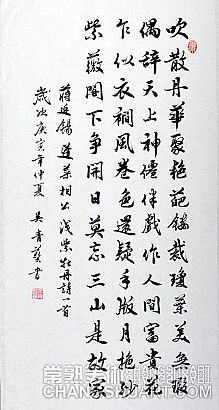 吹散丹華聚艷葩錦裁瓊葉美無瑕
偶辭天上神僊伴戲作人間富貴花
乍似衣裯風卷色還疑手版月拖紗
紫薇閣下爭開日莫忘三山是故家
蔣廷錫蓬萊相公淺紫牡丹詩一首
歲次庚寅年仲夏吳青藝書
常熟美术